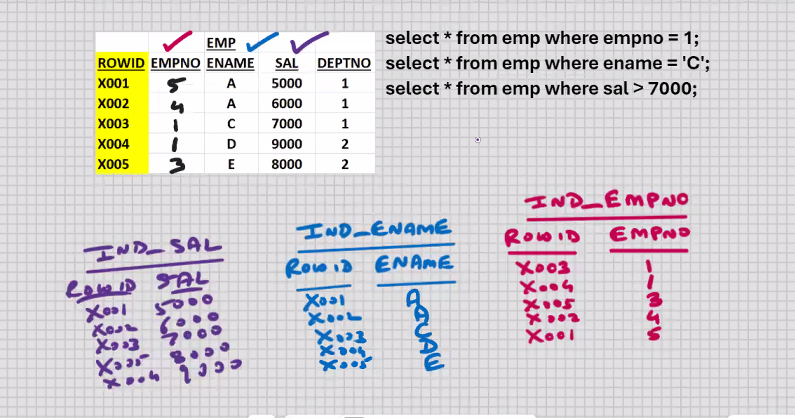 EMP
ROWID EMPNO ENAME SAL DEPTNO
X001 5 A 5000 1
X002 4 A 6000 1
X003 1 C 7000 1
X004 1 D 9000 2
X005 3 E 8000 2
select * from emp where empno = 1;
select * from emp where ename = 'C';
select * from emp where sal > 7000;
IND_SAL
ROWID SAL
X001 5000
X002 6000
X003 7000
X005 8000
X004 9000
IND_ENAME
ROWID ENAME
X001 A
X002 A
X003 C
X004 D
X005 E
IND_EMPNO
ROWID EMPNO
X003 1
X004 1
X005 3
X002 4
X001 5